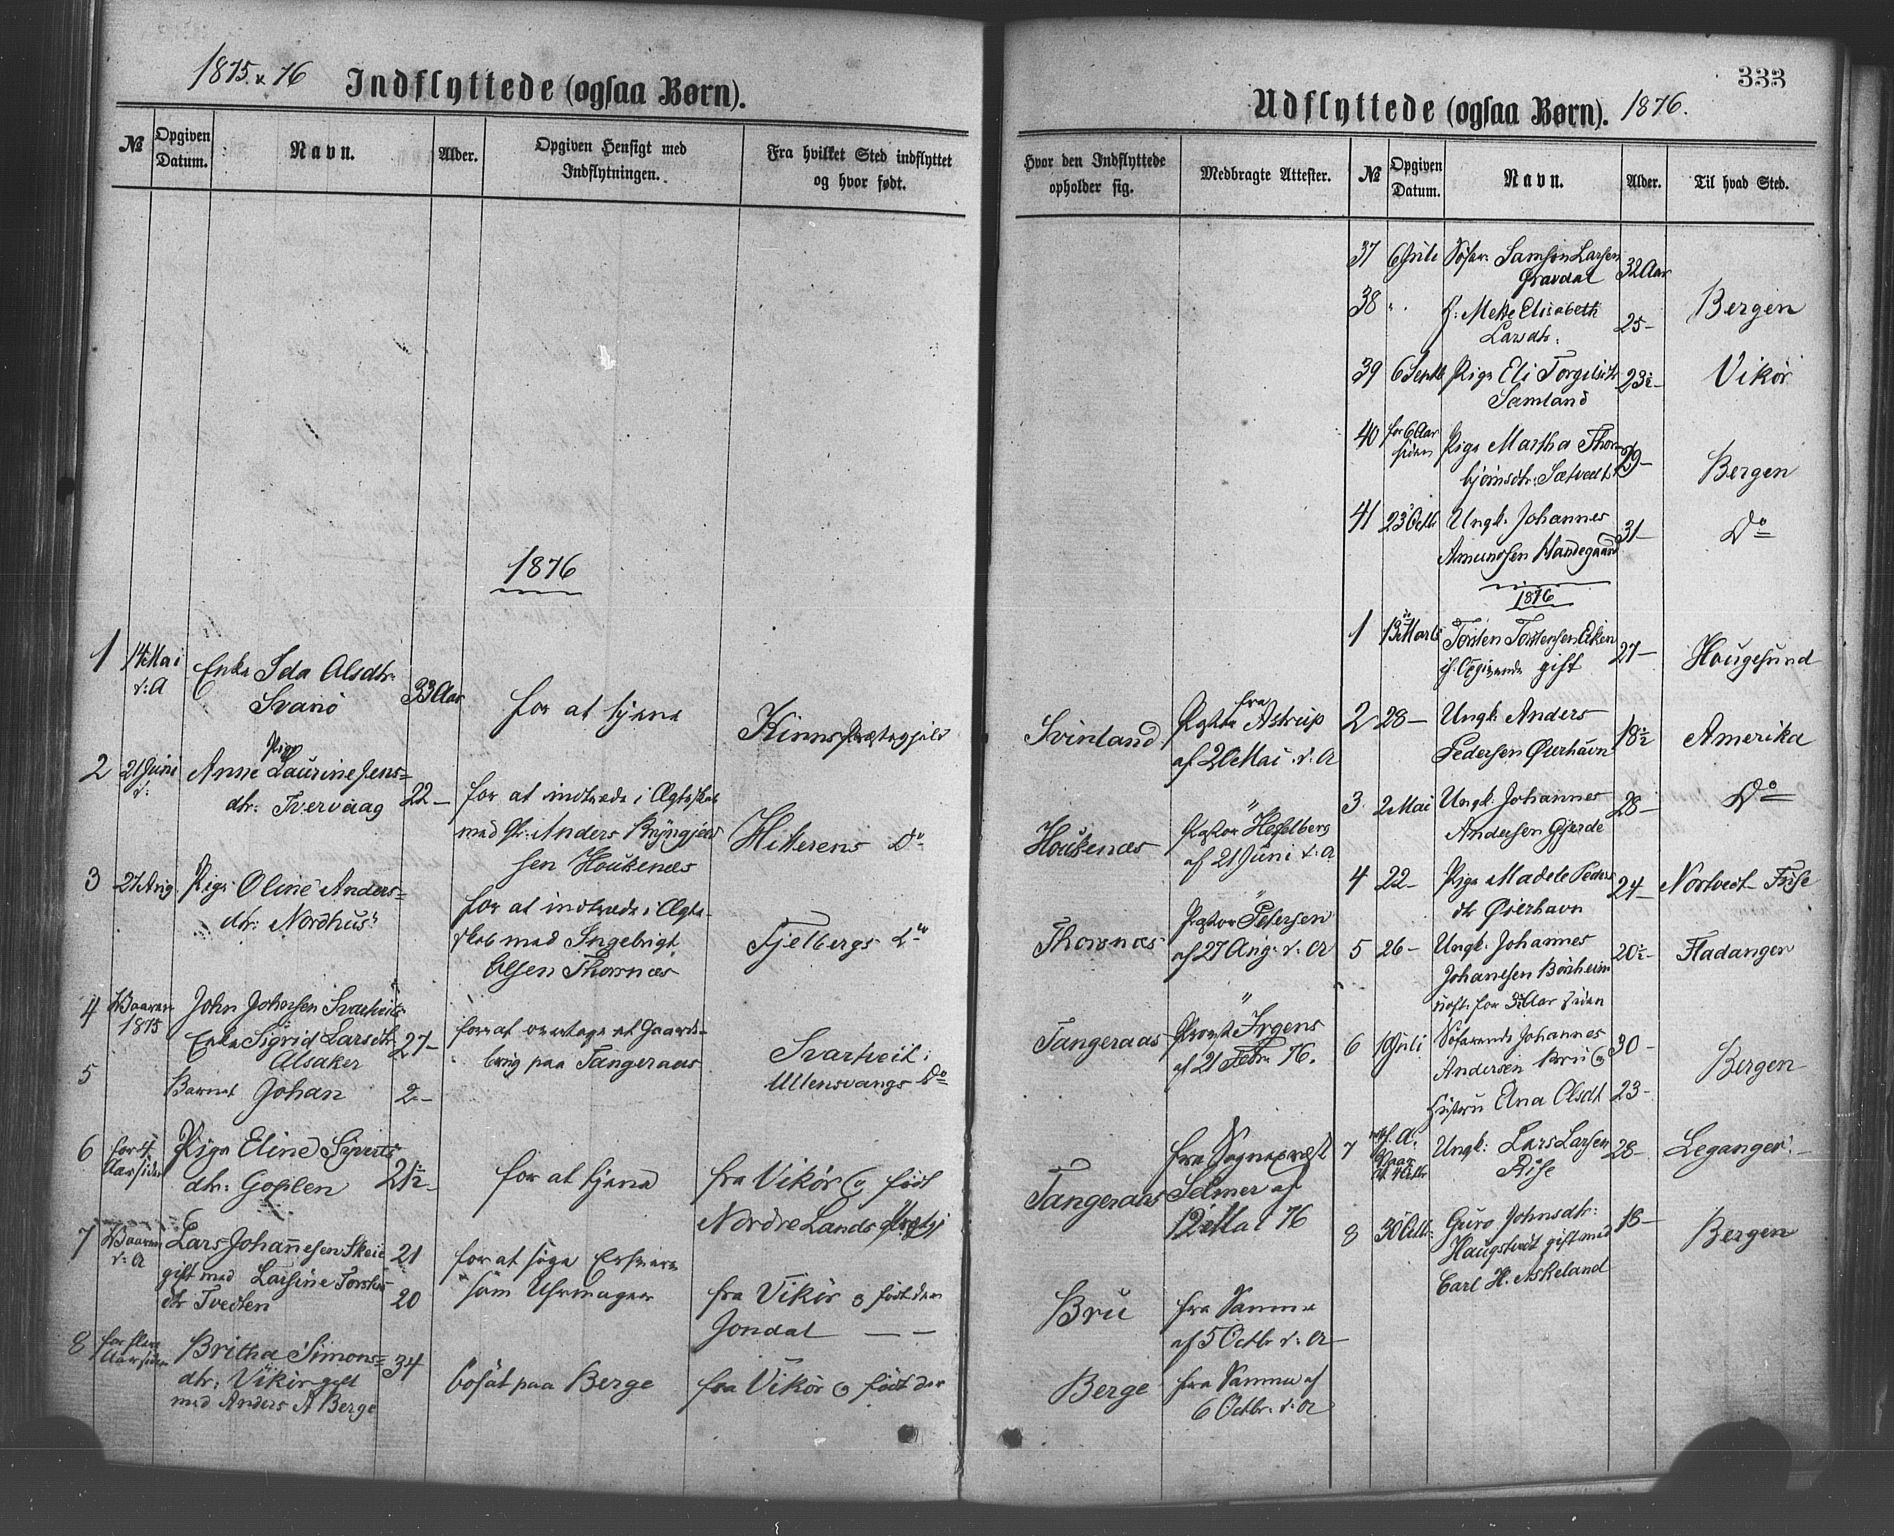 1875 & 76 Indflyttede (ogsaa Børn).
№ Opgiven Datum. Navn. Alder. Opgiven Hensigt med Indflytningen. Fra hvilket Sted indflyttet og hvor født.
1876
1 14 Mai Enke Ida Olsdtr. 33 Aar for at tjene Kinns Præstegjeld
d: A Svanö
2 21 Juni Pige
d: Anne Laurine Jens= 22 — for at indtræde i Ægteskab Hitterens Do
dtr: Tvervaag med Gr: Anders Bryngjels
sen Houkenæs
3 27 Aug. Pige Oline Anders= for at indtræde i Ægte-
dtr: Nordhus skab med Ingebrigt Fjelbergs Do
Olsen Thornæs
4 Vaaren John Johnsen Svartveits
1875 Enke Sigrid Larsdtr 27 — for at overtage et Gaards- Svartveit i
Alsaker brug paa Tangeraas Ullensvangs Do
5 Barnet Johan 2 —
6 for 4 Pige Eline Siverts
Aar siden dtr: Goplen 21½ — for at tjene fra Vikör og födt
Nordre Lands Præstgj
7 Vaaren Lars Johannesen Skeie 21 for at söge Erhverv
d: A gift med Larsine Torstens
dtr Tvedten 20 som Uhrmager fra Vikör og födt der
Jondal — —
8 for flere Britha Simons= 34
Aar siden dtr: Vikör gift bosat paa Berge fra Vikör og födt der
med Anders A Berge
333
Udflyttede (ogsaa Børn). 1876.
Hvor den Indflyttede opholder sig. Medbragte Attester. № Opgiven Datum. Navn. Alder. Til hvad Sted.
37 6 Juli Söfar. Samson Larsen 32 Aar
Gravdal
38 " H: Mette Elisabeth 25 — Bergen
Larsdtr:
39 6 Septb Pige Eli Torgilsdtr 23½ — Vikör
Samland
40 for 6 Aar Pige Martha Thor 29 —
siden björnsdtr: Sætvedt Bergen
41 23 Octb Ungk: Johannes 31 — Do
Amundsen Handegaard
1876
1 13 Marts Torsten Torstensen Eiken 27 — Hougesund
if. Opgivende gift
Svinland fra Pastor Astrup 2 28 — Ungk: Anders 18½ Amerika
af 20 Mai d: A Pedersen Öserhavn
3 2 Mai Ungk: Johannes 28 — Do
Houkenæs Pastor Hesselberg Andersen Gjerde
af 21 Juni d: A
4 22 — Pige Madele Peders 24 —
dtr Öserhavn
Thornæs Pastor Petersen
af 27 Aug. d: A 5 26 — Ungk. Johannes 20½ — Fladanger
Johanesen Börsheim
rejst for 3 Aar siden
Tangeraas Provst Irgens 6 19 Juli Söfarende Johannes 30 —
af 21 Febr: 76. Andersen Bru og Bergen
Hustru Ana Olsdt 23 —
fra Sognepræst 7 Ungk: Lars Larsen 28 — Leganger
Tangeraas Selmer af Rise
12 Mai 76 8 30 Octb: Guro Johnsdtr: 18 — Bergen
Haugstvedt gift med
Carl H. Askeland
Bru fra Samme
af 5 Octbr d: A
Berge fra Samme af
6 Octbr: d: A